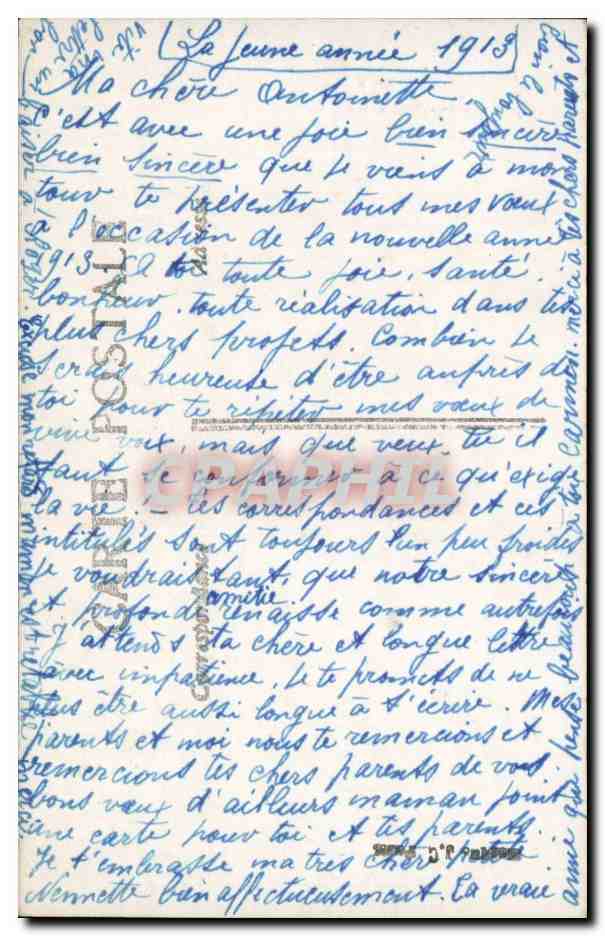 La Jeune année 1913
Ma chère Antoinette,
C'est avec une joie bien sincère
bien sincère que je viens à mon
tour te présenter tous mes vœux
à l'occasion de la nouvelle anne
1913 toute joie, santé,
bonheur, toute réalisation dans tes
plus chers projets. Combien je
serais heureuse d'être auprès de
toi pour te répéter mes vœux de
vive voix, mais que veux-tu il
faut se conformer à ce qu'exige
la vie. – Les correspondances et ces
intitulés sont toujours un peu froides
je voudrais tant, que notre sincère
et profonde renaisse comme autrefois
j'attends ta chère et longue lettre
avec impatience. Je te promets de ne
plus être aussi longue à t'écrire. Mes
parents et moi nous te remercions et
remercions tes chers parents de vos
bons vœux d'ailleurs maman joint
une carte pour toi et tes parents.
Je t'embrasse ma très chère
Nennette bien affectueusement. La vraie
amie que pense beaucoup à toi Carmen. merci à tes chers parents et
CARTE POSTALE
Correspondance
Adresse
CPAPHIL